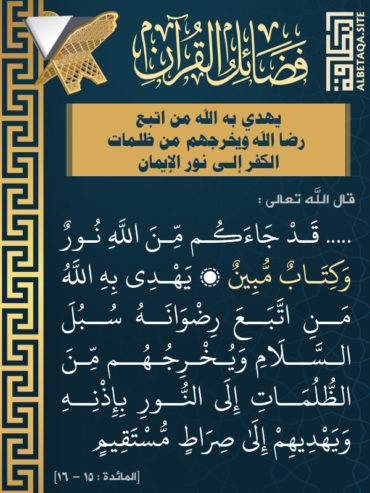 فضائل القرآن
البطاقة
ALBETAQA.SITE
يهدي به الله من اتبع
رضا الله ويخرجهم من ظلمات
الكفر إلى نور الإيمان
قال الله تعالى :
..... قَدْ جَاءَكُم مِّنَ اللَّهِ نُورٌ
وَكِتَابٌ مُّبِينٌ ۞ يَهْدِى بِهِ اللَّهُ
مَنِ اتَّبَعَ رِضْوَانَهُ سُبُلَ
السَّلَامِ وَيُخْرِجُهُم مِّنَ
الظُّلُمَاتِ إِلَى النُّورِ بِإِذْنِهِ
وَيَهْدِيهِمْ إِلَىٰ صِرَاطٍ مُّسْتَقِيمٍ
[المائدة : ١٥ - ١٦]